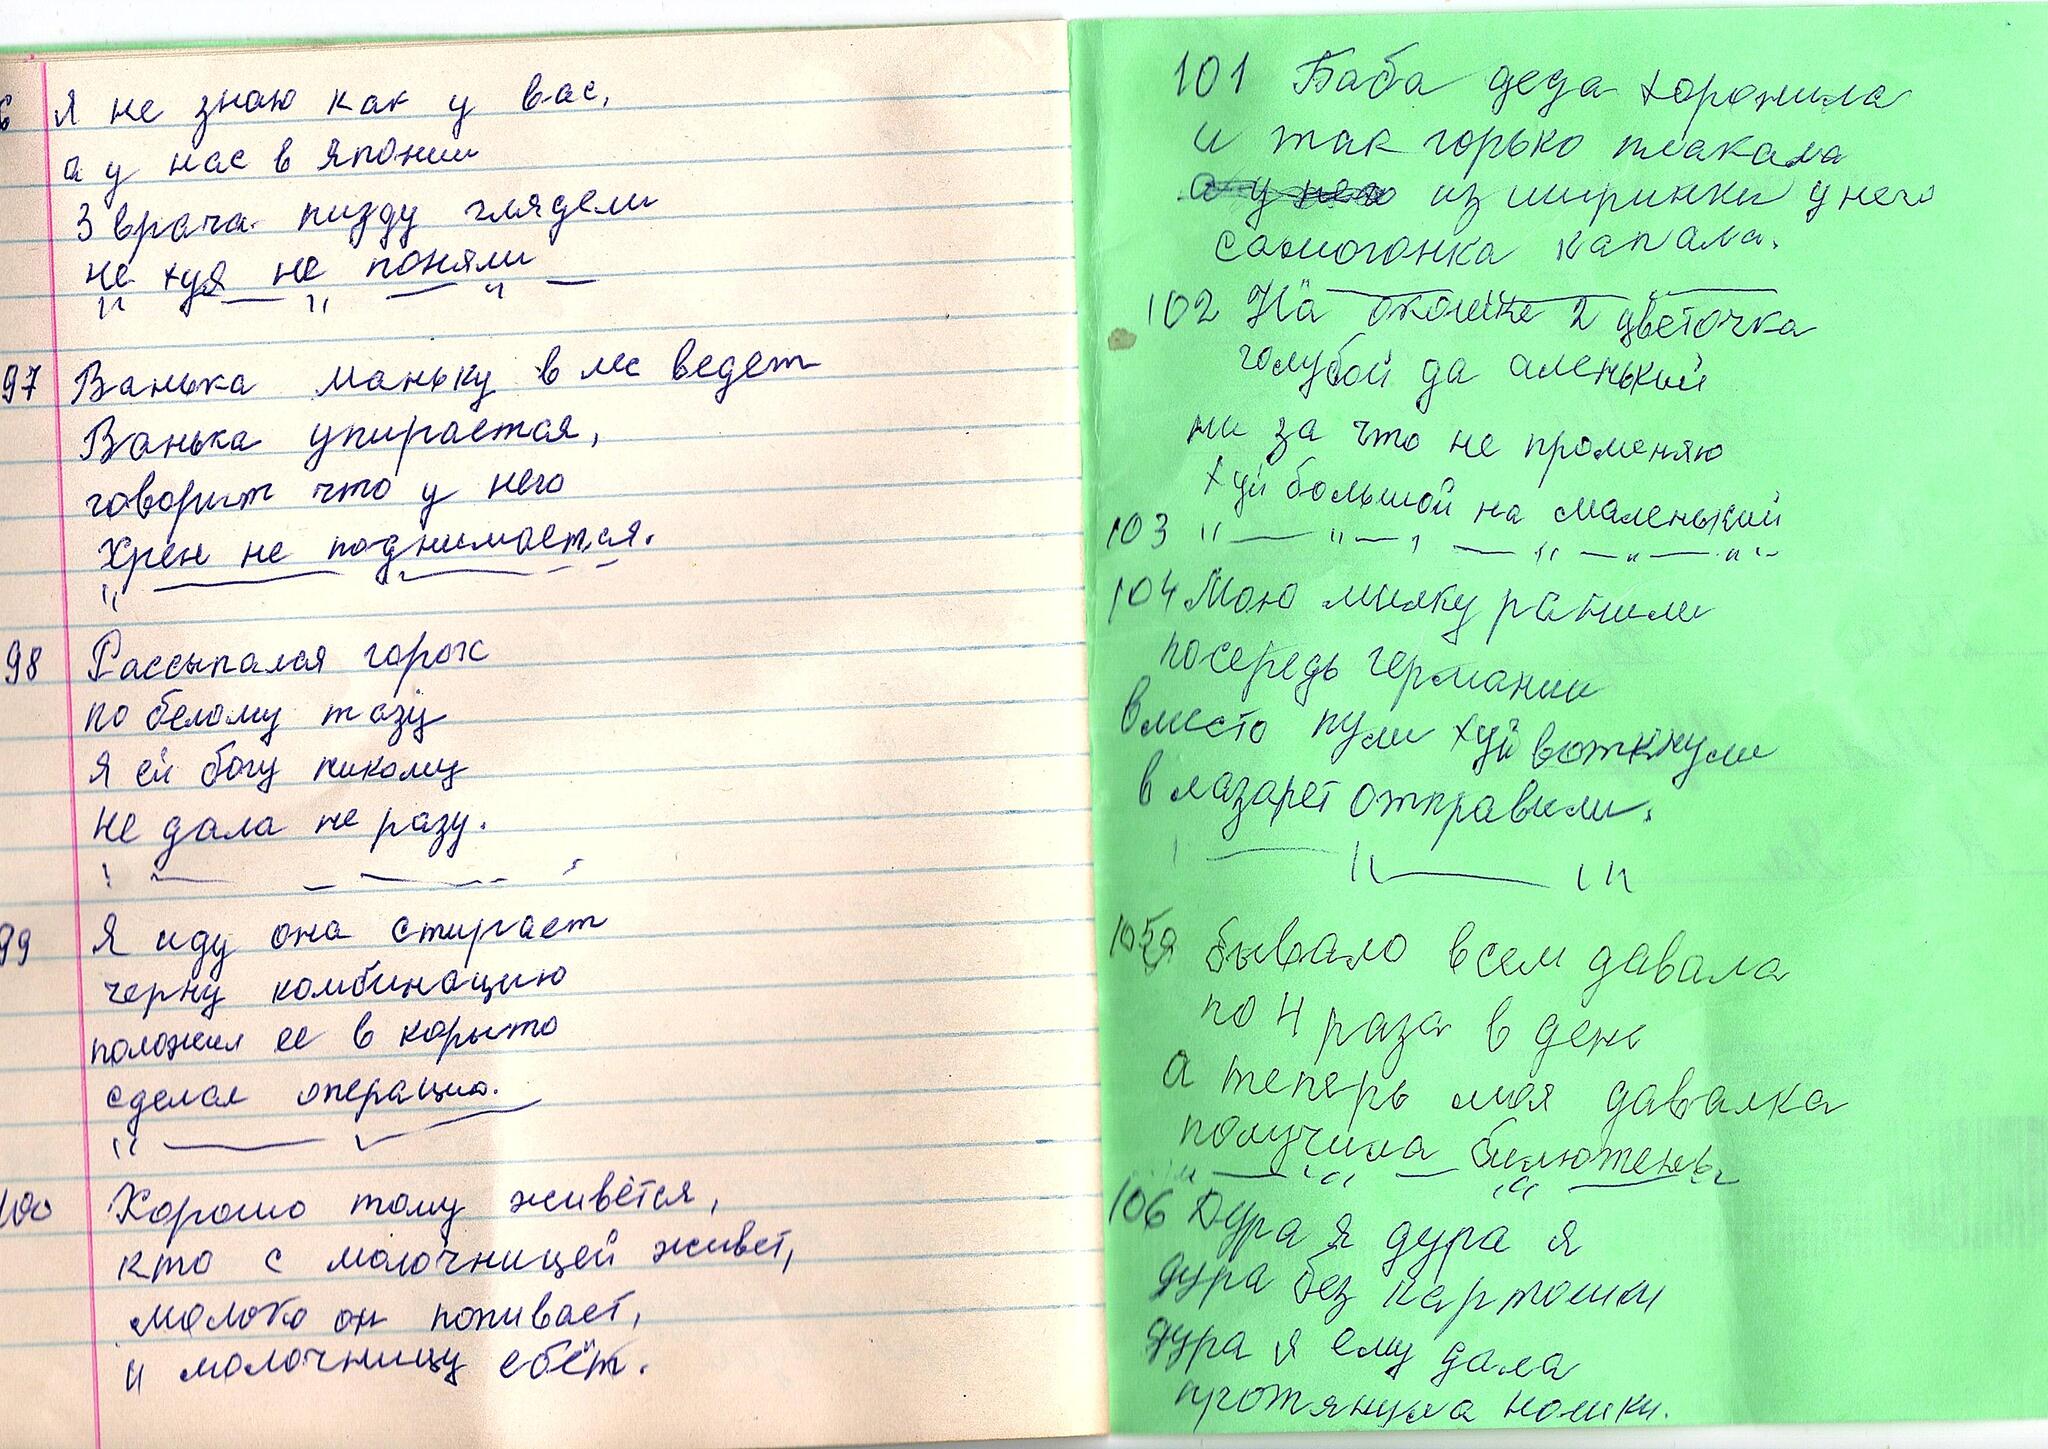 6 Я не знаю как у вас,
а у нас в Японии
3 врача пизду глядели
не хуя не поняли
97 Ванька маньку в лес ведет
Ванька упирается,
говорит что у него
Хрен не поднимается.
98 Рассыпался горох
по белому тазу
Я ей богу никому
не дала не разу.
99 Я иду она стирает
черну комбинацию
положил ее в корыто
сделал операцию.
100 Хорошо тому живётся,
кто с молочницей живет,
молоко он попивает,
и молочницу ебёт.
101 Баба деда хоронила
и так горько плакала
а у него из ширинки у него
самогонка капала.
102 На окошке 2 цветочка
голубой да аленький
ни за что не променяю
хуй большой на маленький
103
104 Мою милку ранили
посередь германии
вместо пули хуй воткнули
в лазарет отправили.
105 я бывало всем давала
по 4 раза в день
а теперь моя давалка
получила билютень
106 Дура я дура я
дура без картошки
дура я ему дала
протянула ножки.